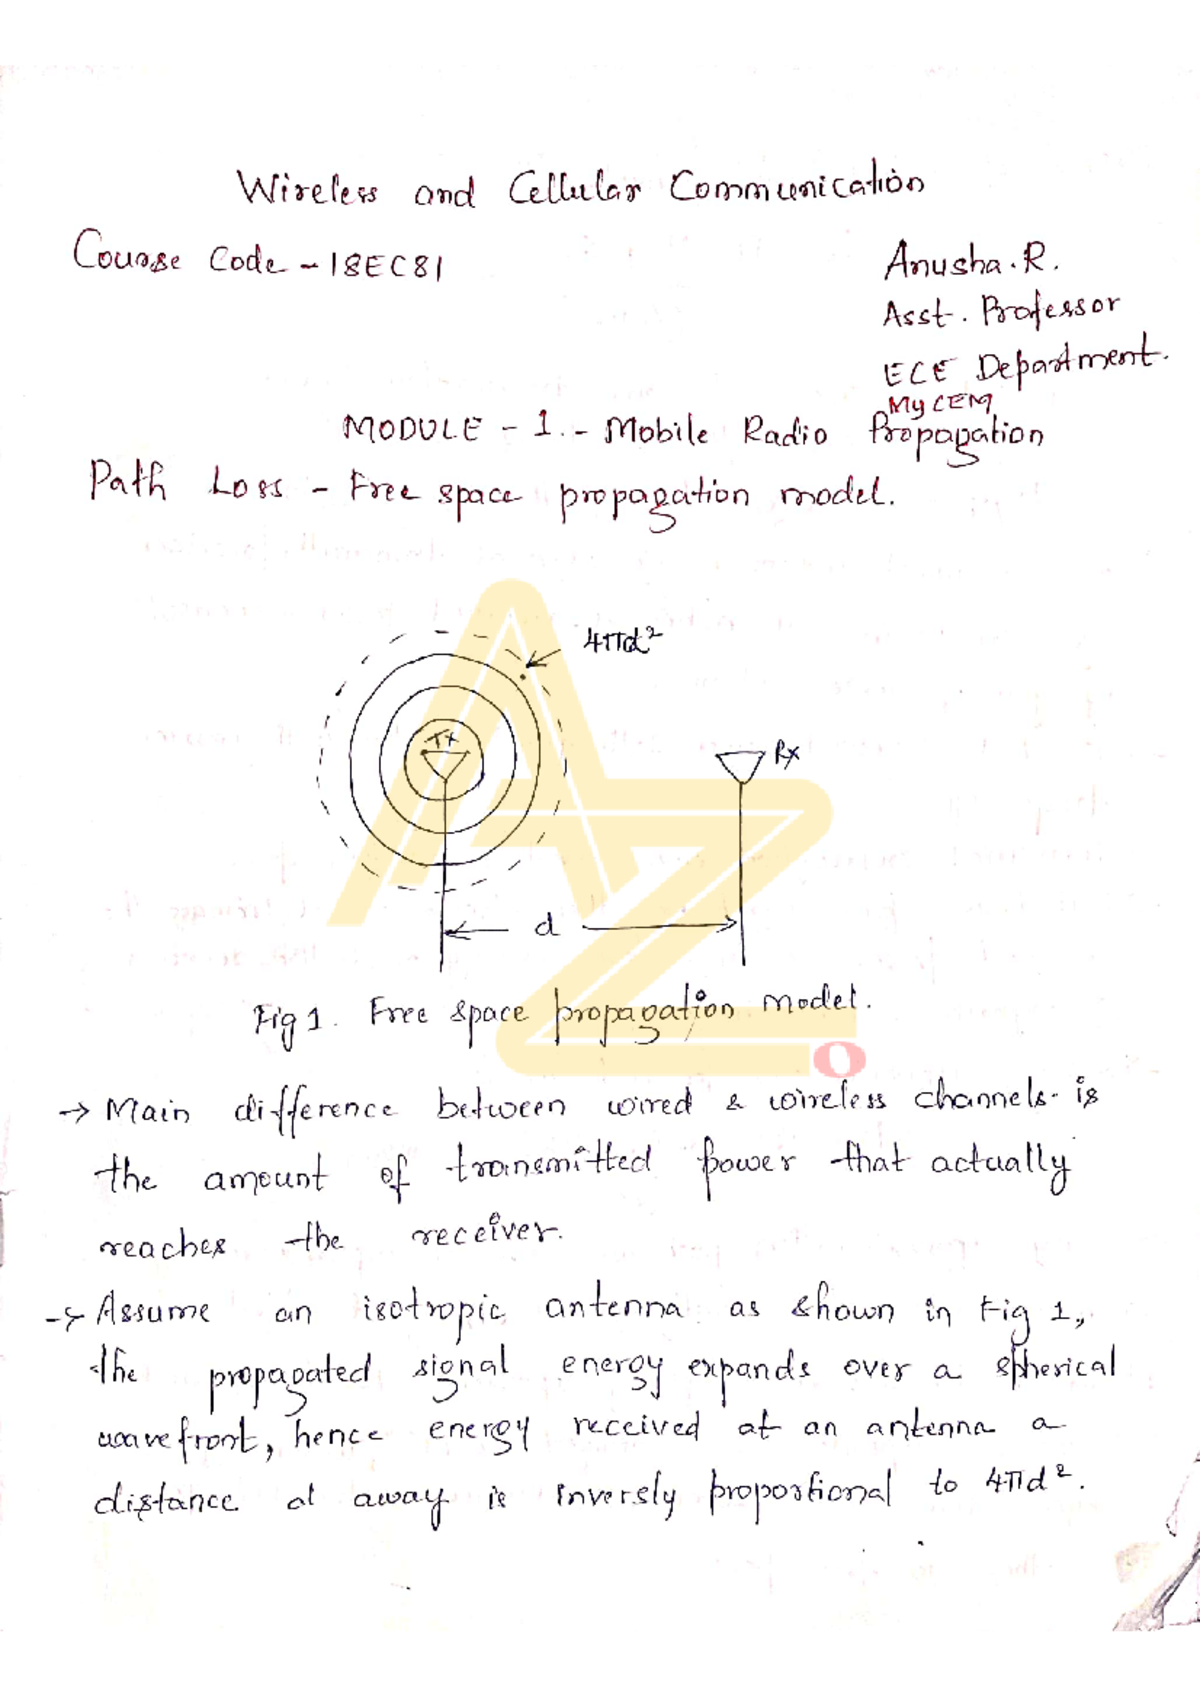 Wireless and Cellular Communication
Course Code - 18EC81
Anusha.R.
Asst. Professor
ECE Department.
MyCEM
MODULE - 1. - Mobile Radio Propagation
Path Loss - Free space propagation model.
4πd²
Tx
Rx
d
Fig 1. Free space propagation model.
→ Main difference between wired & wireless channels is
the amount of transmitted power that actually
reaches the receiver.
→ Assume an isotropic antenna as shown in Fig 1,
the propagated signal energy expands over a spherical
wavefront, hence energy received at an antenna a
distance at away is inversly proportional to 4πd².
AZ
O